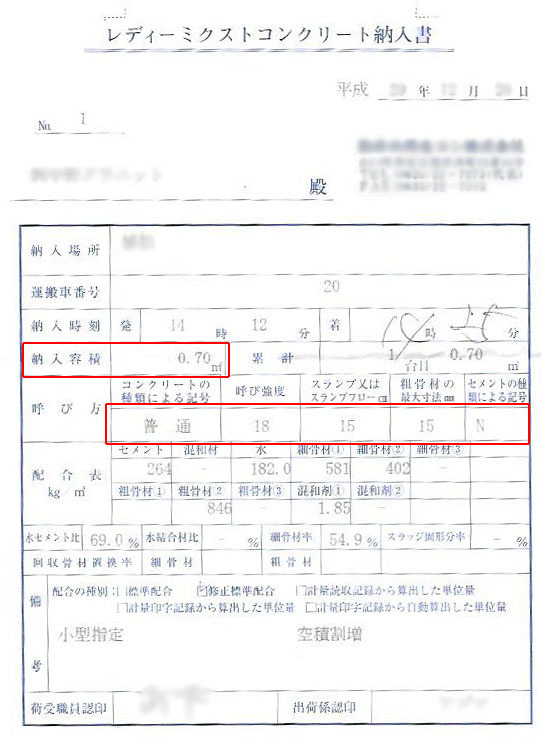 レディーミクストコンクリート納入書
平成 年 月 日
No 1
殿
納入場所
運搬車番号 20
納入時刻 発 14 時 12 分 着 時 分
納入容積 0.70 m³ 累計 1 台目 0.70
呼び方 コンクリートの種類による記号 呼び強度 スランプ又はスランプフロー(cm) 粗骨材の最大寸法(mm) セメントの種類による記号
普通 18 15 15 N
配合表 kg/m³ セメント 混和材 水 細骨材① 細骨材② 細骨材③
264 - 182.0 581 402 -
粗骨材① 粗骨材2 粗骨材③ 混和剤① 混和剤2
- 846 - 1.85 -
水セメント比 69.0 % 水結合材比 - % 細骨材率 54.9 % スラッジ固形分率 - %
回収骨材置換率 細骨材 粗骨材
備考 配合の種別:□標準配合 ☑修正標準配合 □計量読取記録から算出した単位量
□計量印字記録から算出した単位量 □計量印字記録から自動算出した単位量
小型指定 空積割増
荷受職員認印 出荷係認印